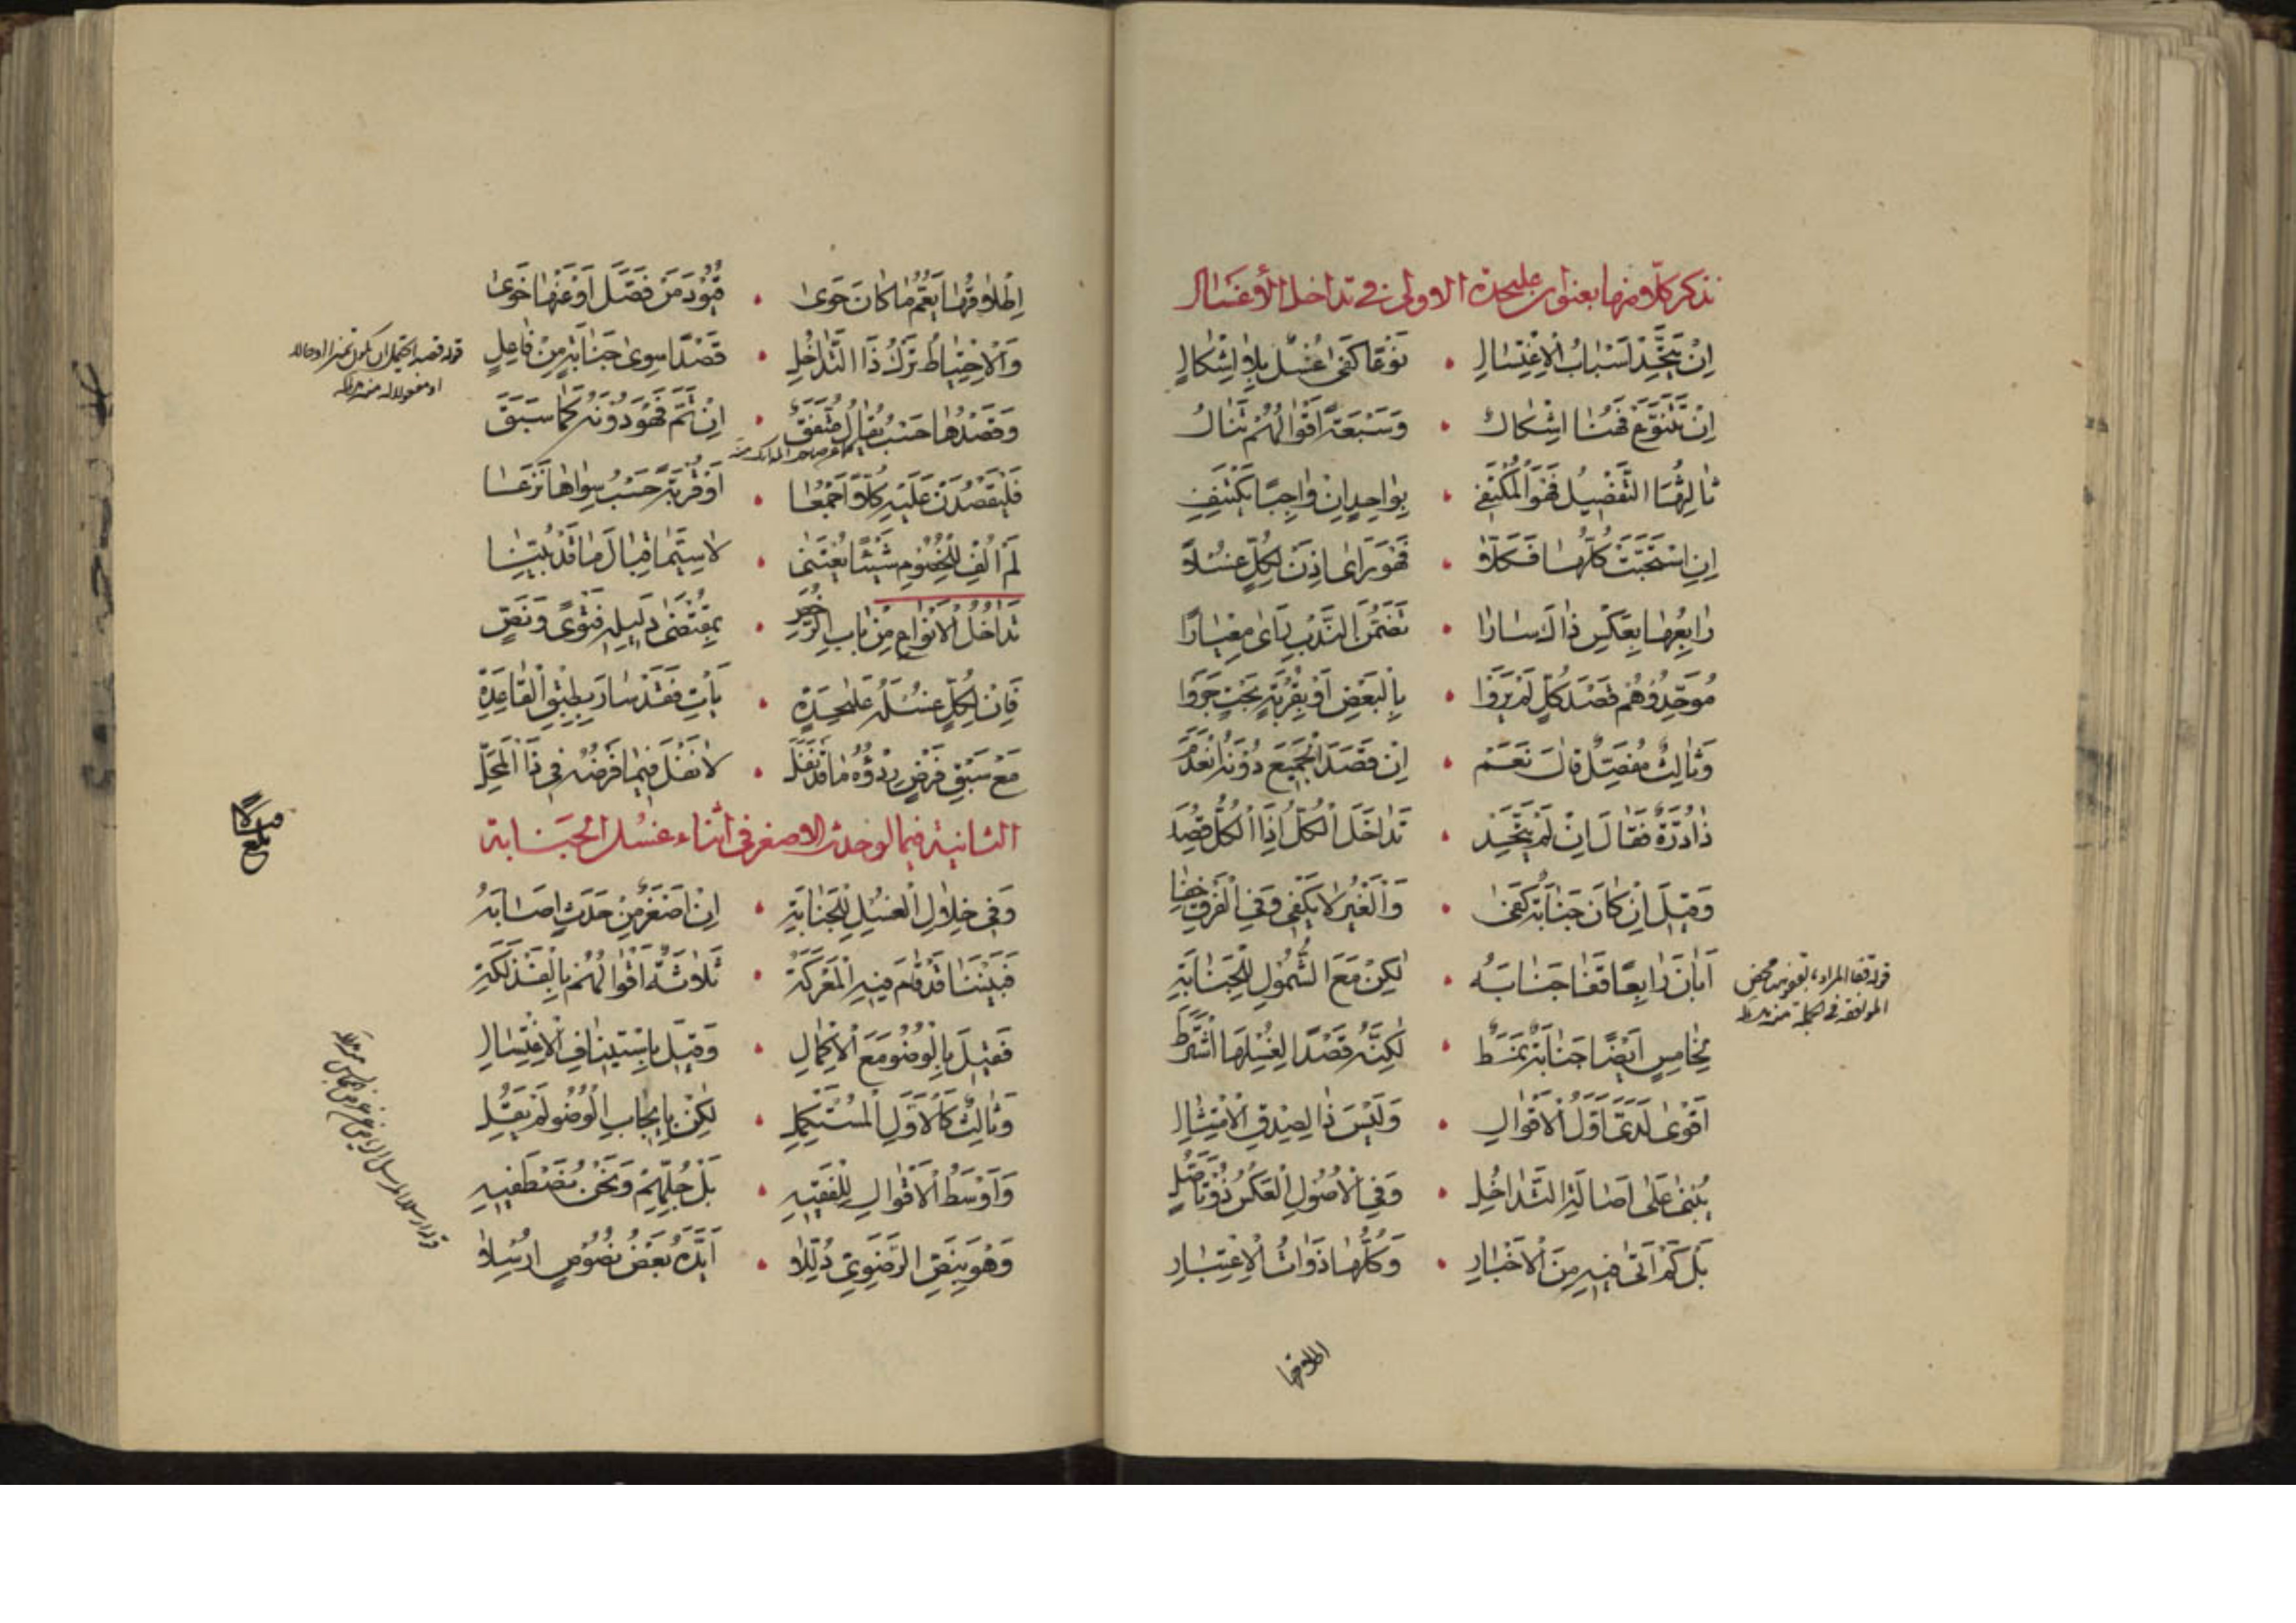 نذكر كلّا منها بعنوان عليحدة الاولى في تداخل الأغسال
اِنْ يَتَّحِدْ اَسْبٰابُ الْاِغْتِسٰالِ • نَوْعًا كَفىٰ غُسْلٌ بِلٰا اِشْكٰالِ
اِنْ تَتَنَوَّعْ فَهُنٰا اِشْكٰالٌ • وَسَبْعَةً اَقْوٰالُهُمْ تَنٰالُ
ثٰالِثُهٰا التَّفْصِيْلُ فَهْوَ الْمُكْتَفِي • بِوٰاحِدٍ اِنْ وٰاجِبًا يَكْتَنِفِ
اِنِ اسْتُحِبَّتْ كُلُّهٰا فَكَلّٰا • فَهْوَ رَاىٰ اِذَنْ لِكُلٍّ غُسْلًا
رٰابِعُهٰا بِعَكْسِ ذٰاكَ سٰارٰا • تَضَمُّنَ النَّدْبِ رَاىٰ مِعْيٰارًا
مُوَحِّدُوْهُمْ قَصْدَ كُلٍّ لَمْ يَرَوْا • بِالْبَعْضِ اَوْ بِقُرْبَةٍ بَحْتٍ جَرَوْا
وَثٰالِثٌ مُفَصِّلٌ قٰالَ نَعَمْ • اِنْ قَصَدَ الْجَمِيْعَ دُوْنَهُ انْعَدَمْ
ذٰا دُرَّةٌ فَقٰالَ اِنْ لَمْ يَتَّحِدْ • تَدٰاخَلَ الْكُلُّ اِذَا الْكُلُّ قُصِدَ
وَقِيْلَ اِنْ كٰانَ جَنٰابَةٌ كَفىٰ • وَالْغَيْرُ لٰا يَكْفِي وَفِي الْفَرْقِ خَفٰا
اَبٰانَ رٰابِعًا قَفٰا جَنٰابَتُه • لٰكِنْ مَعَ الشُّمُولِ لِلْجَنٰابَةِ
بِخٰامِسٍ اَيْضًا جَنٰابَةٌ نَمَطْ • لٰكِنَّهُ قَصْدًا لِغُسْلِهَا اشْتَرَطْ
اَقْوىٰ لَدَىَّ اَوَّلُ الْاَقْوٰالِ • وَلَيْسَ ذٰا لِصِدْقِ الْاِمْتِثٰالِ
يُبْنىٰ عَلىٰ اَصٰالَةِ التَّدٰاخُلِ • وَفِي الْاُصُوْلِ الْعَكْسُ ذُوْ تَاَصُّلِ
بَلْ كَمْ اَتىٰ فِيْهِ مِنَ الْاَخْبٰارِ • وَكُلُّهٰا ذَوٰاتُ الْاِعْتِبٰارِ
قوله قفا المراد
الموافقة في الجملة منه
اطلاقها
اِطْلٰاقُهٰا يَعُمُّ مٰا كٰانَ حَوىٰ • قُيُوْدَ مَنْ فَصَّلَ اَوْ عَنْهٰا خَوىٰ
وَالْاِحْتِيٰاطُ تَرْكُ ذَا التَّدٰاخُلِ • قَصْدًا سِوىٰ جَنٰابَةٍ مِنْ فٰاعِلٍ
وَقَصْدُهٰا حَسْبُ يُقٰالُ مُتَّفَقٌ • اِنْ تَمَّ فَهْوَ دُوْنَهُ كَمٰا سَبَقَ
فَلْيَقْصُدَنْ عَلَيْهِ كُلًّا اَجْمَعٰا • اَوْ قُرْبَةً حَسْبُ سِوٰاهٰا نَزَعٰا
لَمْ اُلْفِ لِلْخُصُومِ شَيْئًا يُعْتَنىٰ • لٰا سِيَّمٰا قِبٰالَ مٰا قَدْ بُيِّنٰا
تَدٰاخُلُ الْاَنْوٰاعِ مِنْ بٰابِ الرُّخَصِ • بِمُقْتَضىٰ دَلِيْلِهِ فَتْوًى وَنَصٍّ
فَاِنْ لِكُلٍّ غُسْلَهُ عَلىٰحِدَةٍ • يَأْتِ فَقَدْ سٰارَ بِطِبْقِ الْقٰاعِدَةِ
مَعْ سَبْقِ فَرْضٍ رِدْؤُهُ مٰا قَدْ نَفَلَ • لٰا نَفْلَ فِيْمٰا فَرْضُهُ فِي ذَا الْمَحَلِّ
الثانية فيما لو حدث الاصغر في اثناء غسل الجنابة
وَفِي خِلٰالِ الْغُسْلِ لِلْجَنٰابَةِ • اِنْ اَصْغَرٌ مِنْ حَدَثٍ اَصٰابَهُ
فَبَيْنَنٰا قَدْ قٰامَ فِيْهِ الْمَعْرَكَةُ • ثَلٰاثَةٌ اَقْوٰالُهُمْ بِالْفَذْلَكَةِ
فَقِيْلَ بِالْوُضُوءِ مَعَ الْاِكْمٰالِ • وَقِيْلَ بِاسْتِيْنٰافِ الْاِغْتِسٰالِ
وَثٰالِثٌ كَالْاَوَّلِ الْمُسْتَكْمِلِ • لٰكِنْ بِاِيْجٰابِ الْوُضُوءِ لَمْ يَقُلِ
وَاَوْسَطُ الْاَقْوٰالِ لِلْفَقِيْهِ • بَلْ جُلِّهِمْ وَنَحْنُ نَصْطَفِيْهِ
وَهْوَ بِنَصِّ الرَّضَوِيِّ دُلِّلٰا • اَيَّدَهُ بَعْضُ نُصُوْصٍ اُرْسِلٰا